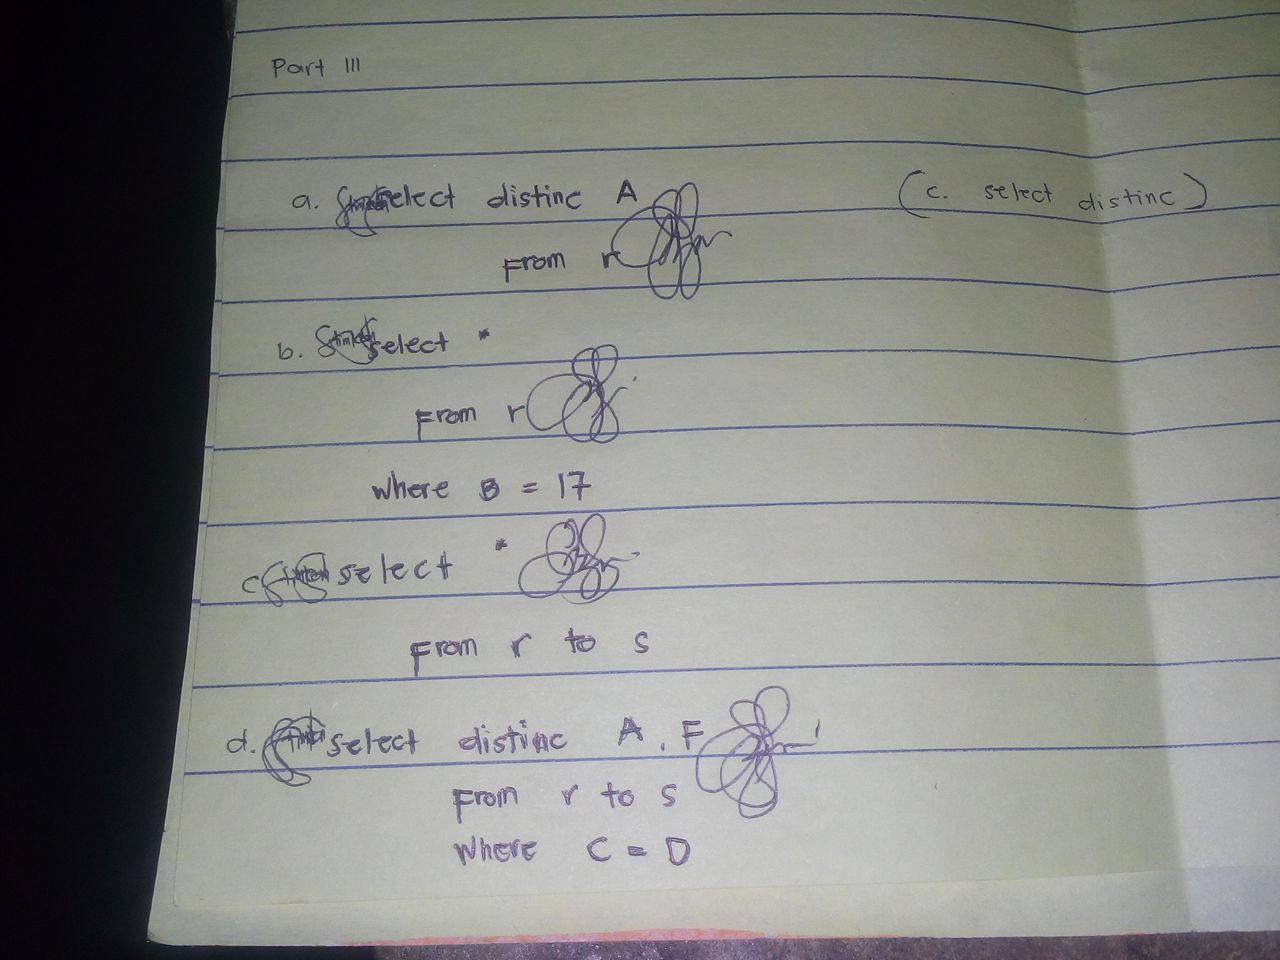 Part III
a. select distinc A
(c. select distinc)
From r
b. select *
From r
where B = 17
c select *
From r to s
d. select distinc A, F
From r to s
where C = D